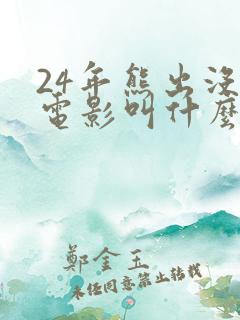 24年熊出没
電影叫什麽
鄭金玉
未经同意禁止转载